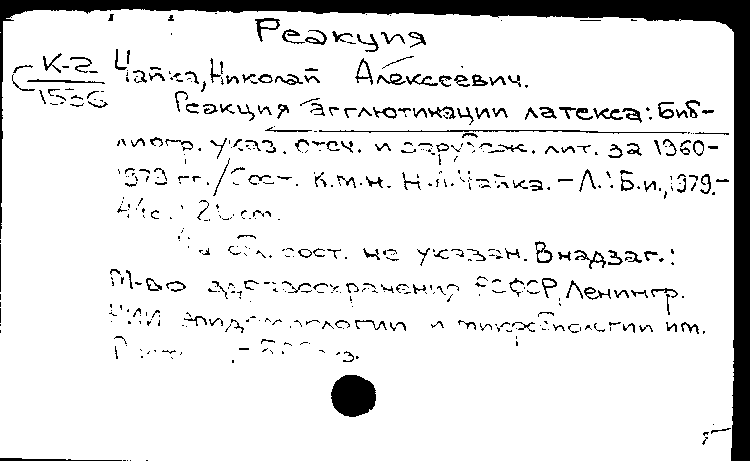 Реакция
К-2
1556
Чайка, Николай Алексеевич.
Реакция агглютинации латекса: Биб-
лиогр. указ. отеч. и зарубеж. лит. за 1960-
1979 гг. / Сост. К.м.н. Н.А. Чайка. - Л.: Б.и., 1979.-
44 с.; 20 см.
На обл. сост. не указан. В надзаг.:
М-во здравоохранения РСФСР, Ленингр.
НИИ эпидемиологии и микробиологии им.